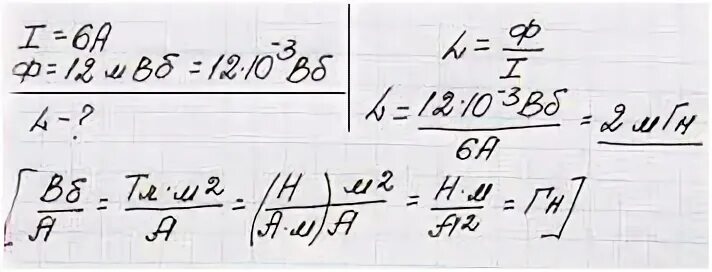 I = 6A
Ф = 12 мВб = 12·10⁻³ Вб
L - ?
L = Ф/I
L = 12·10⁻³Вб/6A = 2 мГн
[Вб/A = Тл·м2/A = (Н/A·м) м2/A = Н·м/A2 = Гн]